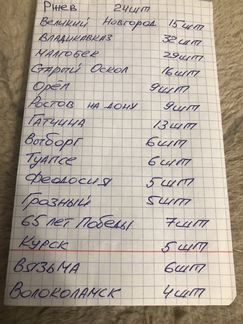 Ржев 24шт
Великий Новгород 15шт
Владикавказ 32шт
Малгобек 29шт
Старый Оскол 16шт
Орёл 9шт
Ростов на дону 9шт
Гатчина 13шт
Выборг 6шт
Туапсе 6шт
Феодосия 5шт
Грозный 5шт
65 лет Победы 7шт
Курск 5шт
Вязьма 6шт
Волоколамск 4шт